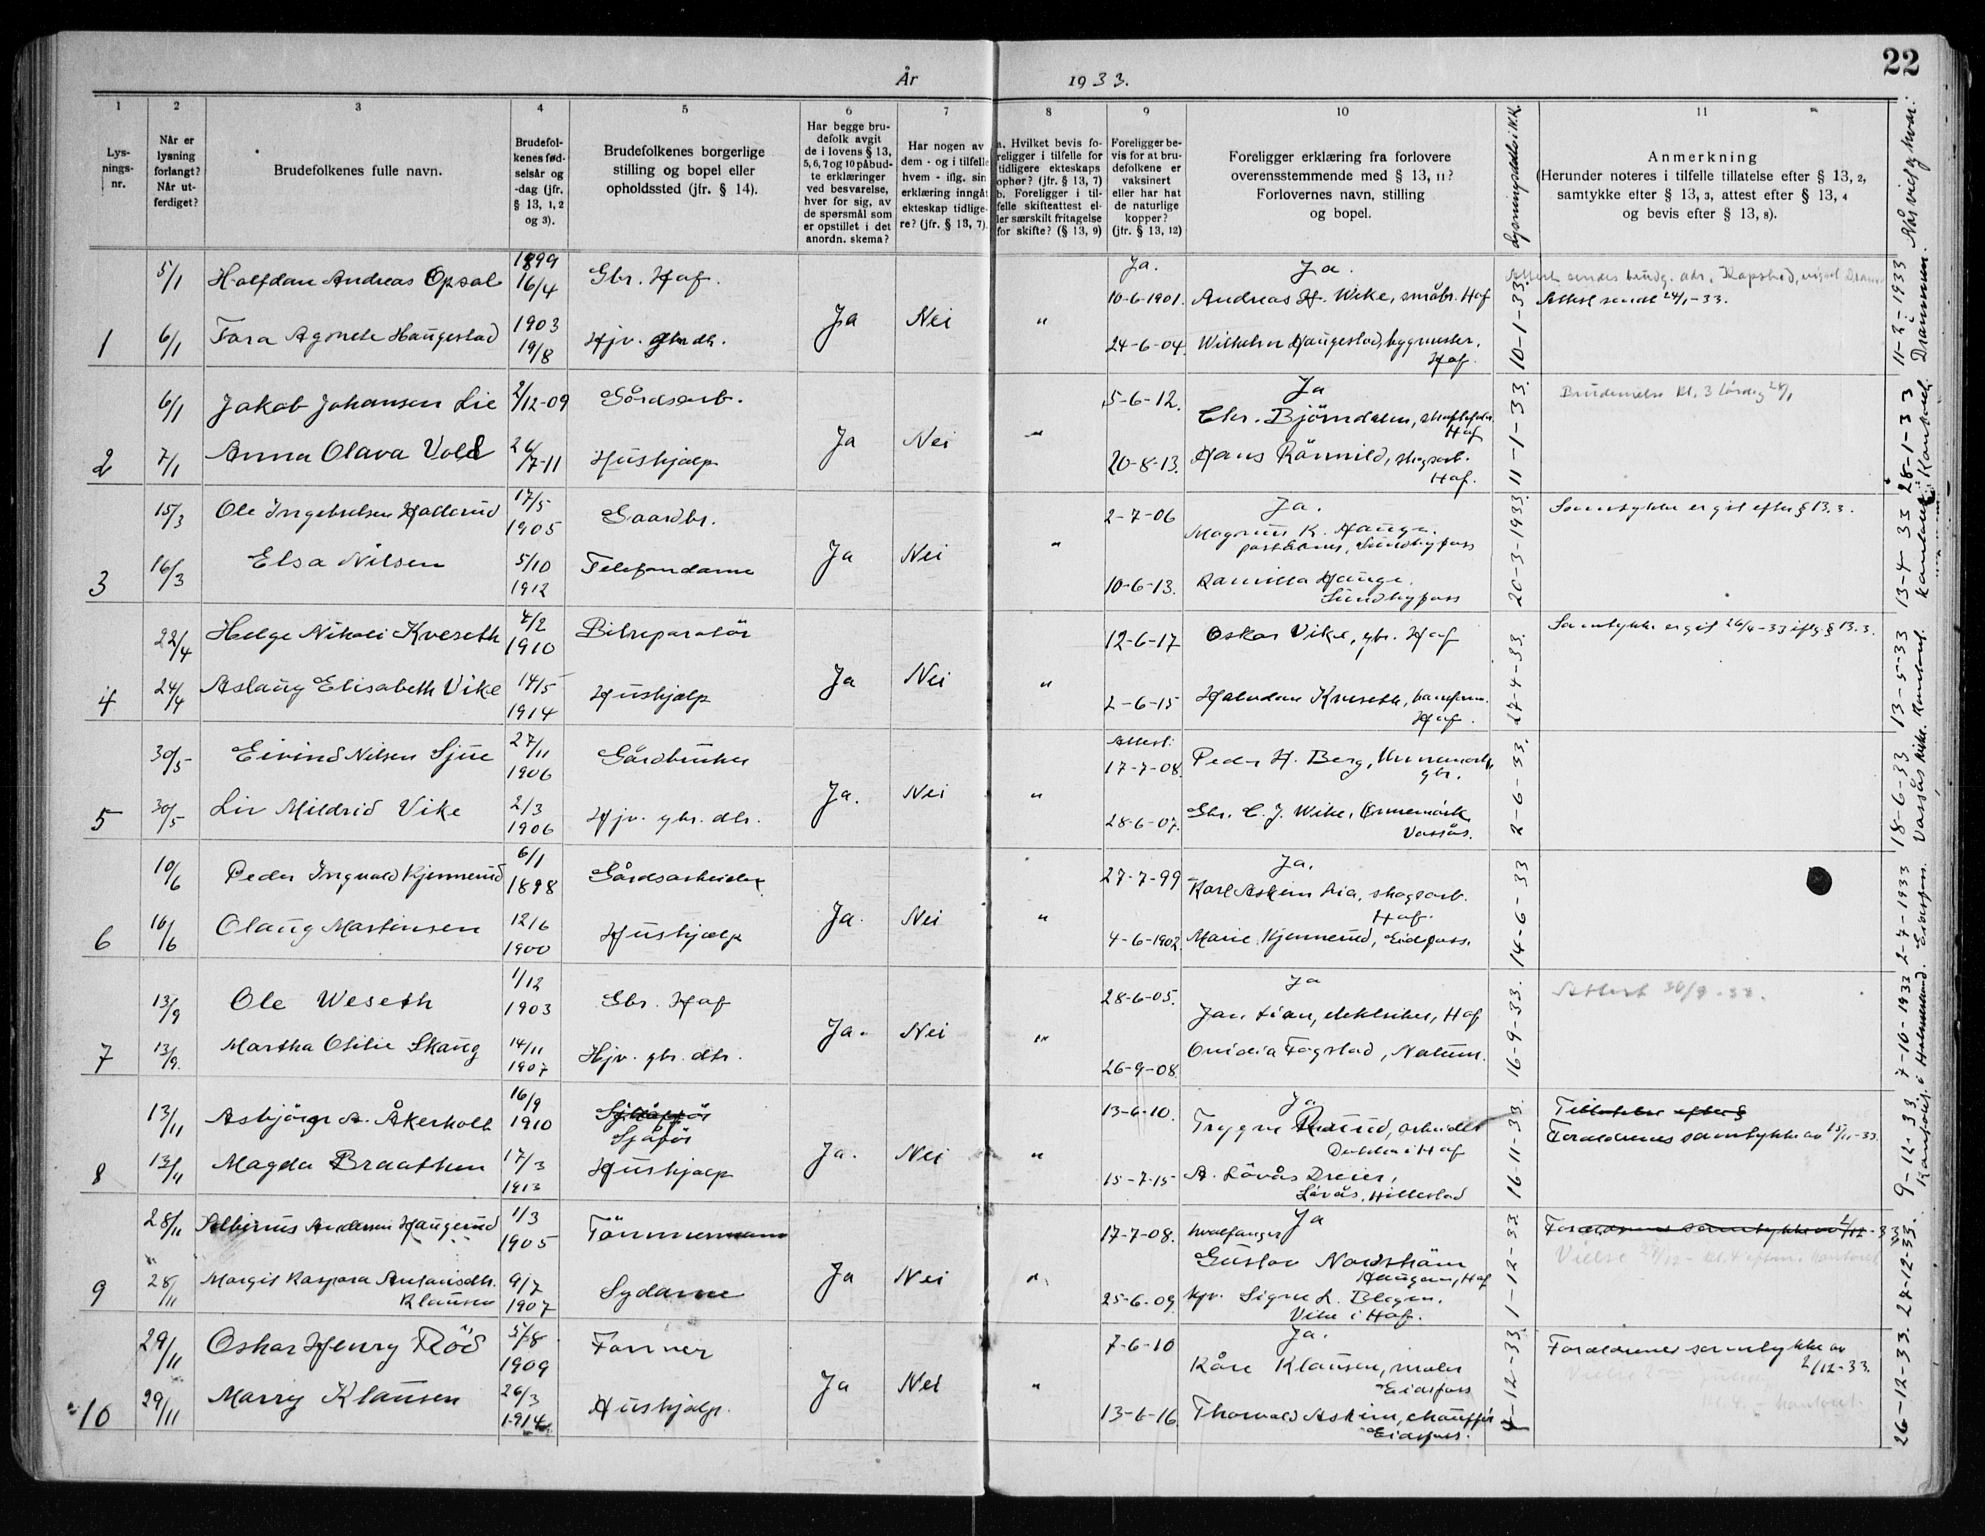 22
År 1933.
1 2 3 4 5 6 7 8 9 10 11
Lys-
nings-
nr.
Når er
lysning
forlangt?
Når ut-
ferdiget?
Brudefolkenes fulle navn.
Brudefol-
kenes fød-
selsår og
-dag (jfr.
§ 13, 1, 2
og 3).
Brudefolkenes borgerlige
stilling og bopel eller
opholdssted (jfr. § 14).
Har begge bru-
defolk avgit
de i lovens § 13,
5, 6, 7 og 10 påbud-
te erklæringer
ved besvarelse,
hver for sig, av
de spørsmål som
er opstillet i det
anordn. skema?
Har nogen av
dem - og i tilfelle
hvem - iflg. sin
erklæring inngåt
ekteskap tidlige-
re? (jfr. § 13, 7).
a. Hvilket bevis fo-
religger i tilfelle for
tidligere ekteskaps
ophør? (jfr. § 13, 7)
b. Foreligger i til-
felle skifteattest el-
ler særskilt fritagelse
for skifte? (§ 13, 9)
Foreligger be-
vis for at bru-
defolkene er
vaksinert
eller har hat
de naturlige
kopper?
(jfr. § 13, 12)
Foreligger erklæring fra forlovere
overensstemmende med § 13, 11?
Forlovernes navn, stilling
og bopel.
Anmerkning
(Herunder noteres i tilfelle tillatelse efter § 13, 2,
samtykke efter § 13, 3, attest efter § 13, 4
og bevis efter § 13, 8).
Når viet og hvor.
1 5/1 Halfdan Andreas Opsal 1899 16/4 Gbr. Hof. Ja Nei " Ja. 10-6-1901. Ja. Andreas H. Wike, småbr. Hof 10-1-33. Attest sendt 24/1-33. 11-2-1933 Drammen.
6/1 Tora Agnete Haugestad 1903 19/8 Hjv. gbr. dtr. 24-6-04. Wilhelm Haugestad, bygmester. Hof.
2 6/1 Jakob Johansen Lie 2/12-09 Gårdsarb. Ja Nei " 5-6-12. Ja Chr. Björndalen, Hof 11-1-33. kl. 3 lördag 28/1 28-1-33 Kontoret.
7/1 Anna Olava Vold 26/7-11 Hushjælp 20-8-13. Hans Rönnild, skogsarb. Hof.
3 15/3 Ole Ingebretsen Hallerud 17/5 1905 Gaardbr. Ja Nei " 2-7-06 Ja. Magnus K. Hauge. Sundbyfoss 20-3-1933 Samtykke er git efter § 13.3. 13-4-33 Kontoret
16/3 Elsa Nilsen 5/10 1912 Telefondame 10-6-13. Kamilla Hauge. Sundbyfoss
4 22/4 Helge Nikolai Kveseth 4/2 1910 Bilreparatör Ja Nei " 12-6-17 Oskar Vike, gbr. Hof 27-4-33. Samtykke er git 26/4-33 eftg § 13.3. 13-5-33 Kontoret.
24/4 Aslaug Elisabeth Vike 14/5 1914 Hushjælp 2-6-15 Halvdan Kveseth, Hof.
5 30/5 Eivind Nilsen Sjue 27/11 1906 Gårdbruker Ja. Nei " Attest: 17-7-08. Peder H. Berg, gbr. 2-6-33. 18-6-33 Vassås kirke.
30/5 Liv Mildrid Vike 2/3 1906 Hjv. gbr. dtr. 28-6-07. Gbr. C. J. Wike, Vassås.
6 10/6 Peder Ingvald Kjennerud 6/1 1898 Gårdsarbeider Ja. Nei " 27-7-99 Ja. Karl Askim Lia, skogsarb. Hof. 14-6-33 2-7-1933 Eidsfoss.
16/6 Olaug Martinsen 12/6 1900 Hushjælp 4-6-1902 Marie Kjennerud, Eidsfoss.
7 13/9 Ole Weseth 1/12 1903 Gbr. Hof Ja. Nei " 28-6-05. Ja Jan Lian, elektriker, Hof 16-9-33. Attest 30/9-33. 7-10-1933 i Holmestrand.
13/9. Martha Otilie Skaug 14/11 1907 Hjv. gbr. dtr. 26-9-08. Ovidia Fogstad,
8 13/11 Asbjörn A. Åkerholt 16/9 1910 Sjåfør Ja. Nei " 13-6-10. Ja Trygve arbeider i Hof 16-11-33. Foreldrenes samtykke av 15/11-33. 9-12-33. Kontoret.
13/11 Magda Braathen 17/3 1913 Hushjælp 15-7-15 A. Lövås Dreier, Lövås, Hillestad
9 28/11 Andersen Haugerud 1/3 1905 Tömmermann Ja Nei " 17-7-08. Ja hvalfanger Gustav Nordström Haugan, Hof 1-12-33. Foreldrenes samtykke av 24-12-33.
28/11 Margit Kaspara Antonsdtr. Klausen 9/7 1907 Sydame 25-6-09. hjv. Signe L. Vike i Hof.
10 29/11 Oskar Henry Röd 5/8 1909 Former Ja Nei " 7-6-10 Ja. Kåre Klausen, maler Eidsfoss 4-12-33. Foreldrenes samtykke av 2/12-33. 26-12-33.
29/11 Marry Klausen 26/3 1914 Hushjælp. 13-6-16. Thorvald Askim, chauffør Eidsfoss.